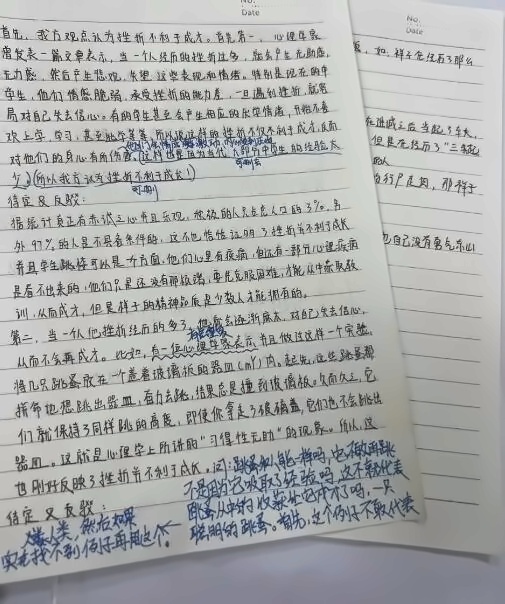 No.
Date
首先，我方观点认为挫折不利于成才。首先第一，心理学家
曾发表一篇文章表示，当一个人经历的挫折过多，就会产生无助感，
无力感，然后产生悲观，失望这些表现和情绪。特别是现在的中
学生，他们情感脆弱，承受挫折的能力差，一旦遇到挫折，就容
易对自己失去信心。有的学生甚至会产生相应的厌学情绪，开始不喜
欢上学，学习，甚至逃学等等，所以说这样的挫折不仅不利于成才，反而
对他们的身心有所伤害，这样也是因为当代大部分中学生的经验太
少，(所以我方认为挫折不利于成长！)
可删去
可删
待定义反驳：
据统计真正有赤诚之心并且乐观，积极的人只占总人口的3%，另
外97%的人是不具备条件的，这不也恰恰证明了挫折并不利于成长
并且学生跳楼可以是一个方面，他们心里有疾病，但还有一部分心理疾病
是看不出来的，他们只是还没有那极端，要先克服困难，才能从中获取教
训，从而成才，但是祥子的精神品质是少数人才能拥有的。
第二，当一个人他挫折经历的多了，他就会逐渐麻木，对自己失去信心，
从而不会再成才。比如，有一位心理学家表示，并且做过这样一个实验，
将几只跳蚤放在一个盖着玻璃板的器皿(mY)内。起先，这些跳蚤都
拼命地想跳出器皿，奋力去跳，结果总是撞到玻璃板。久而久之，它
们就保持了同样跳的高度，即使你拿走了玻璃盖，它们也不会跳出
器皿。这就是心理学上所讲的“习得性无助”的现象。所以，这
也刚好反映了挫折并不利于成长。问：跳蚤和人能一样吗，它不敢再跳
待定义反驳：
不是因它吸取了经验吗，这不就代表
跳蚤从中的收获让它成才了吗，一只
聪明的跳蚤。首先，这个例子不能代表
人类，然后如果
实在找不到例子再用这个。
No.
Date
如，祥子在经历了那么
但是在经历了“三起
的人
那祥子
也自己没有勇气和心